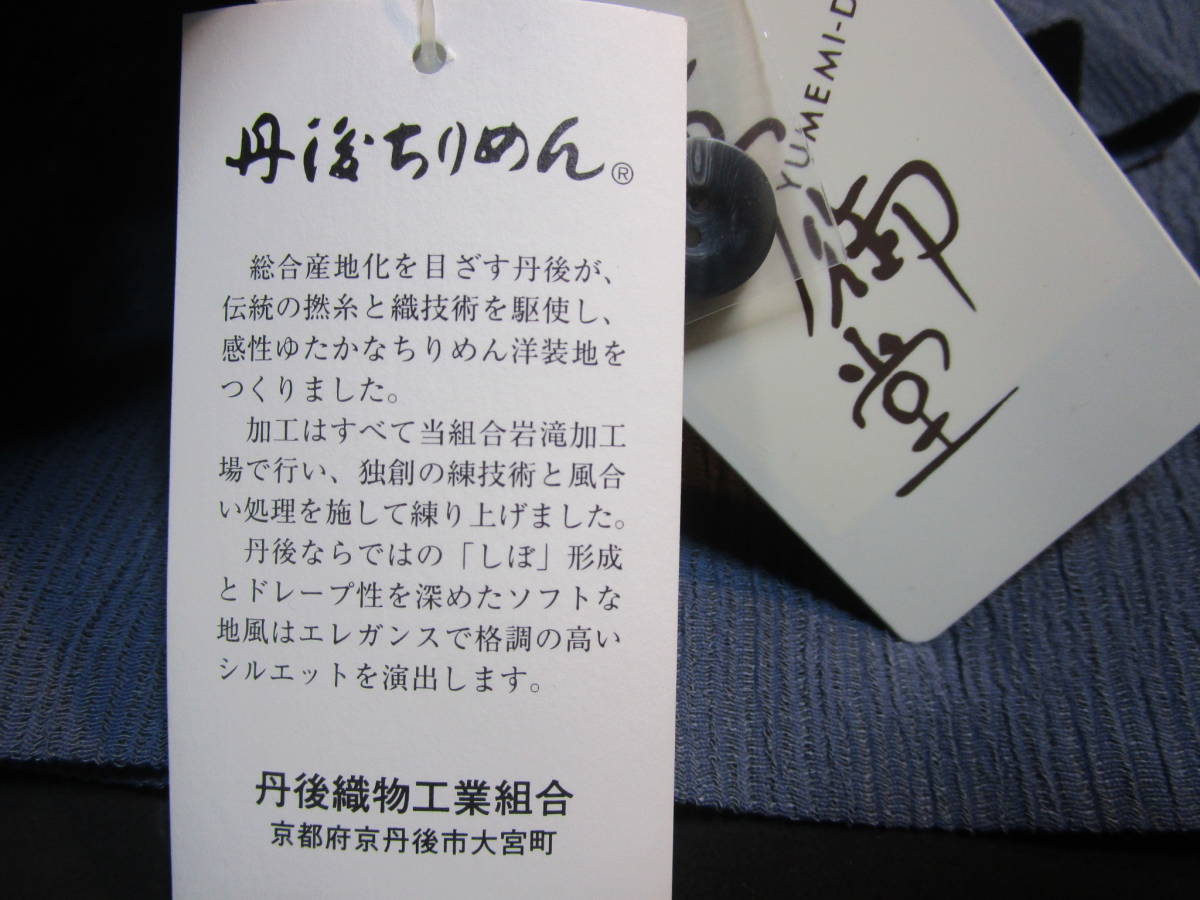 丹後ちりめん®
総合産地化を目ざす丹後が、
伝統の撚糸と織技術を駆使し、
感性ゆたかなちりめん洋装地を
つくりました。
加工はすべて当組合岩滝加工
場で行い、独創の練技術と風合
い処理を施して練り上げました。
丹後ならではの「しぼ」形成
とドレープ性を深めたソフトな
地風はエレガンスで格調の高い
シルエットを演出します。
丹後織物工業組合
京都府京丹後市大宮町
YUMEMI-D
御
堂